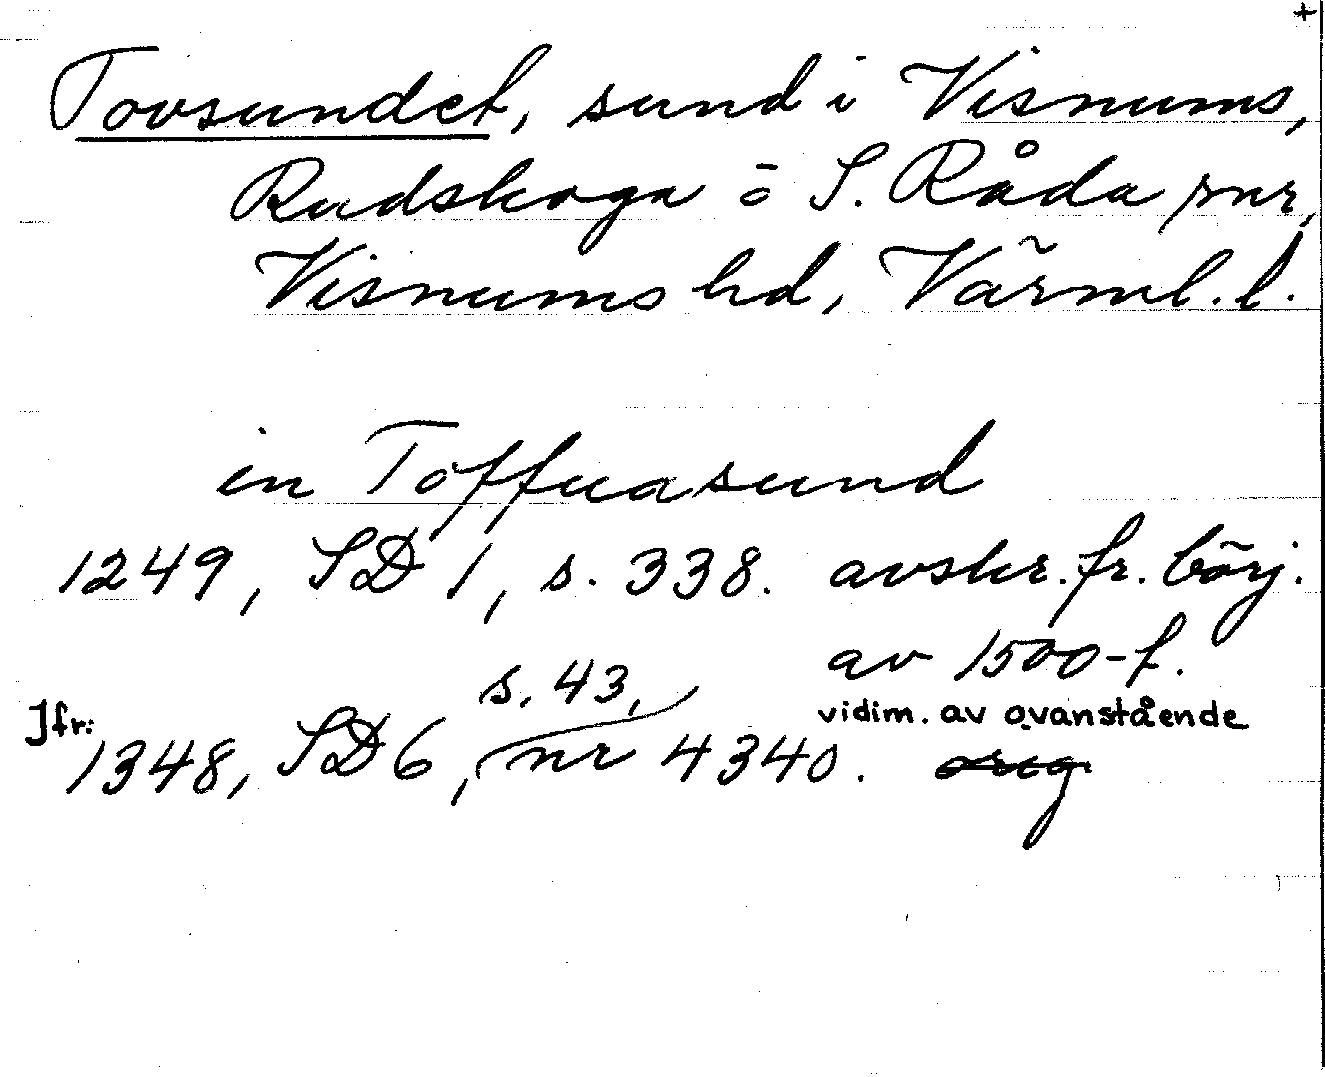 +
Tovsundet, sund i Visnums,
Rudskoga o S. Råda snr,
Visnums hd, Värml. l.
in Toffuasund
1249, SD 1, s. 338. avskr. fr. börj.
av 1500-t.
Jfr: 1348, SD 6, s. 43, nr 4340. vidim. av ovanstående
orig